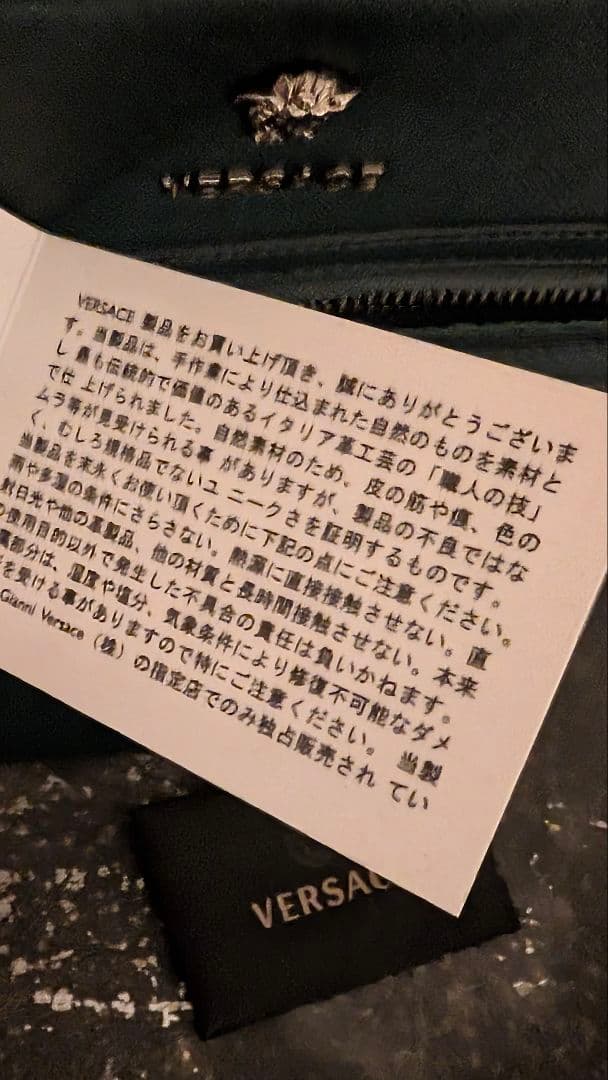 VERSACE
VERSACE 製品をお買い上げ頂き、誠にありがとうございま
す。当製品は、手作業により仕込まれた自然のものを素材と
し 最も伝統的で価値のあるイタリア革工芸の「職人の技」
で仕 上げられました。自然素材のため、皮の筋や痕、色の
ムラ等が見受けられる事 がありますが、製品の不良ではな
く、むしろ規格品でないユ ニークさを証明するものです。
当製品を末永くお使い頂くために下記の点にご注意ください。
雨や多湿の条件にさらさない。熱源に直接接触させない。直
射日光や他の革製品、他の材質と長時間接触させない。本来
の使用目的以外で発生した不具合の責任は負いかねます。
属部分は、湿度や塩分、気象条件により修復不可能なダメ
を受ける事がありますので特にご注意ください。 当製
Gianni Versace（株）の指定店でのみ独占販売され てい
VERSAC